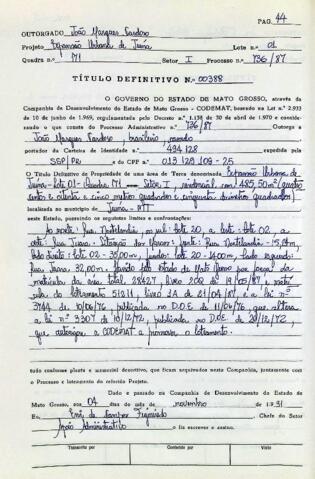 PAG. 44
OUTORGADO João Marques Cardoso
Projeto Expansão Urbana de Juína Lote n.º 01
Quadra n.º 71 Setor I Processo n.º 736/87
TÍTULO DEFINITIVO N.º 00388
O GOVERNO DO ESTADO DE MATO GROSSO, através da
Companhia de Desenvolvimento do Estado de Mato Grosso - CODEMAT, baseado na Lei n.º 2.933
de 10 de junho de 1969, regulamentada pelo Decreto n.º 1.138 de 30 de abril de 1970 e conside-
rando o que consta do Processo Administrativo n.º 736/87 Outorga a
João Marques Cardoso, brasileiro,
portador da Carteira de Identidade n.º 494128 expedida pela
SSP/PR e do CPF n.º 013 128 109-25
O Título Definitivo de Propriedade de uma área de Terra denominada Expansão Urbana de
Juína - Lote 01 - Quadra 71 - Setor I, com 485,50m² (quatro
centos e oitenta e cinco metros quadrados e cinquenta quadrados)
localizada no município de Juína - MT
neste Estado, possuindo os seguintes limites e confrontações:
ao norte: Rua, ao sul: lote 20, a leste: lote 02, a
Frente: Rua
lado direito: lote 02 - 35,00m, fundos: lote 20 - 14,00m, lado esquerdo:
Rua 32,00m. pelo Estado de Mato Grosso por força da
matrícula da área total 28427, livro de 19/05/87, e
do loteamento 51211, livro 2A de 21/04/87, e a lei nº
3744 de 10/06/76 publicada no D.O.E de 11/06/76, que altera
a lei nº 3307 de 18/12/72, publicada no D.O.E de 20/12/72,
que autoriza a CODEMAT a promover o loteamento.
tudo conforme planta e memorial descritivo, que ficam arquivados nesta Companhia, juntamente com
o Processo e loteamento do referido Projeto.
Dado e passado na Companhia de Desenvolvimento do Estado de
Mato Grosso, aos 04 dias do mês de novembro de 1.991
Eu, Figueiredo Chefe do Setor
Apoio Administrativo o fiz escrever e assino.
Transcrito por Conferido por Visto